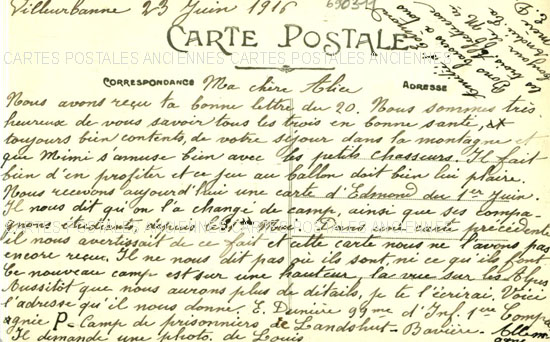 Villeurbanne 23 Juin 1916
630311
CARTES POSTALES ANCIENNES
CARTE POSTALE
CORRESPONDANCE
ADRESSE
Ma chère Alice
Nous avons reçu ta bonne lettre du 20. Nous sommes très
heureux de vous savoir tous les trois en bonne santé, et
toujours bien contents, de votre séjour dans la montagne et
que Mimi s'amuse bien avec les petits chasseurs. Il fait
bien d'en profiter et ce jeu au ballon doit bien lui plaire.
Nous recevons aujourd'hui une carte d'Edmond du 1er Juin.
Il nous dit qu'on l'a changé de camp, ainsi que ses compa
gnons étudiants, depuis le Mai. Dans une carte précédente
il nous avertissait de ce fait et cette carte nous ne l'avons pas
encore reçue. Il ne nous dit pas où ils sont, ni ce qu'ils font
Ce nouveau camp est sur une hauteur, la vue sur les Alpes
Aussitôt que nous aurons plus de détails, je te l'écrirai. Voici
l'adresse qu'il nous donne. E. 99me d'Inf. 1ère Comp
agnie P- Camp de prisonniers de Landshut - Bavière. Allem
agne
Il demande une photo de Louis